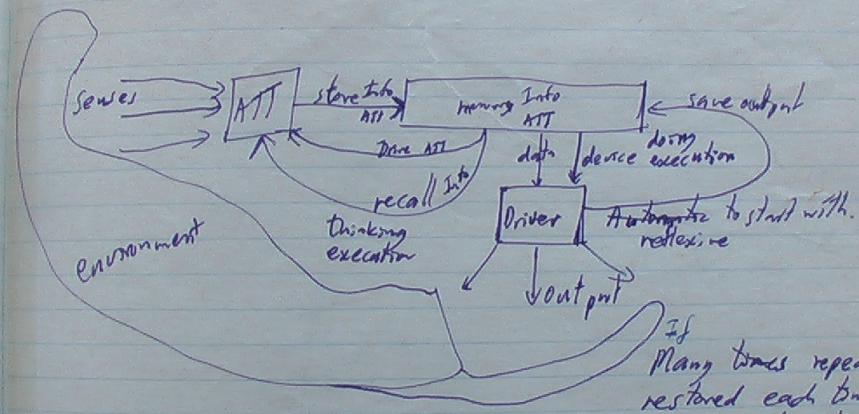 senses
ATT
store Info
ATT
memory Info
ATT
save output
Drive ATT
data
device
doing
execution
recall Info
thinking
execution
Driver
Automatic to start with.
reflexive
environment
output
If
Many times repea
restored each tim